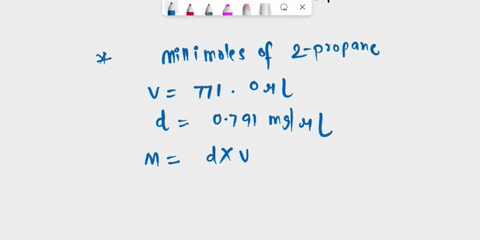 * millimoles of 2-propane
V = 771.0 μL
d = 0.791 mg/μL
M = d×V